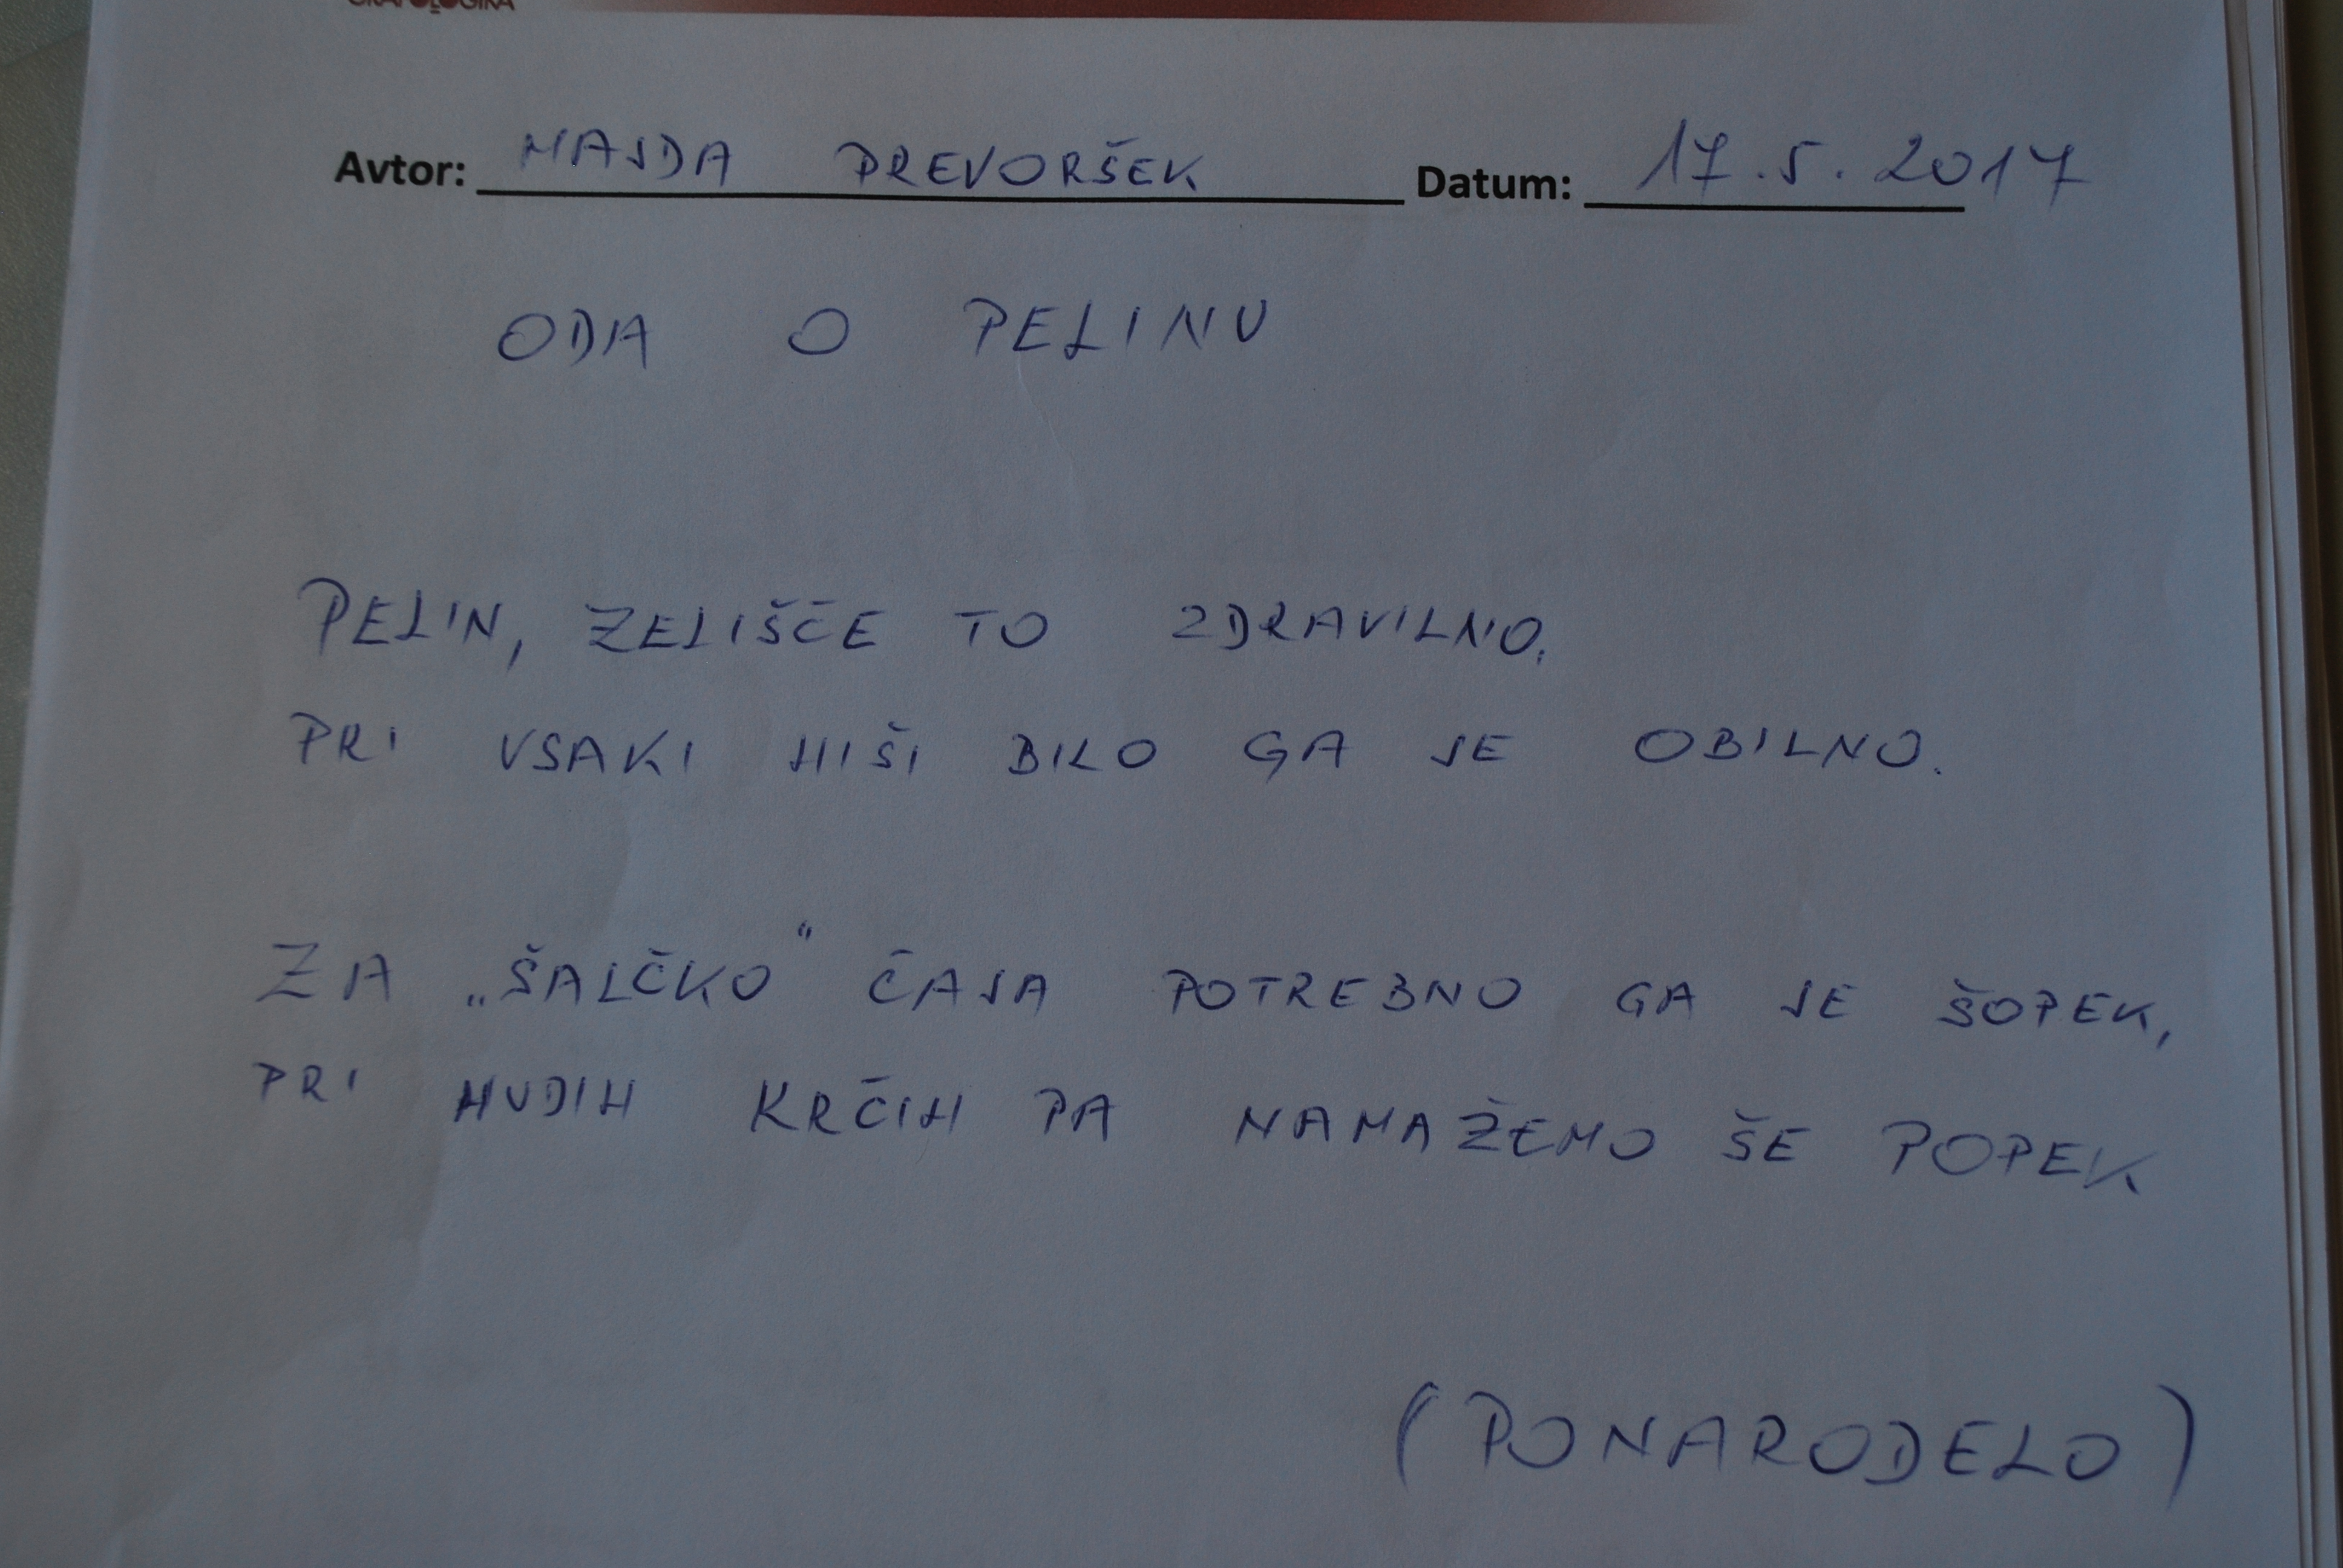 Avtor: MAJDA PREVORŠEK Datum: 17.5.2017
ODA O PELINU
PELIN, ZELIŠČE TO ZDRAVILNO,
PRI VSAKI HIŠI BILO GA JE OBILNO.
ZA „ŠALČKO“ ČAJA POTREBNO GA JE ŠOPEK,
PRI HUDIH KRČIH PA NAMAŽEMO ŠE POPEK
(PONARODELO)